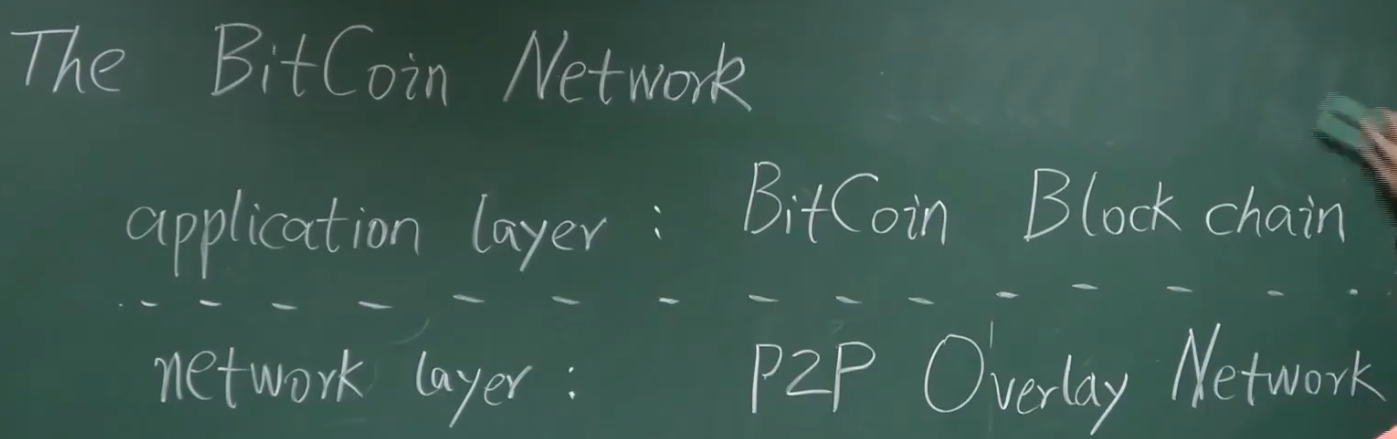 The BitCoin Network
application layer : BitCoin Block chain
network layer : P2P Overlay Network